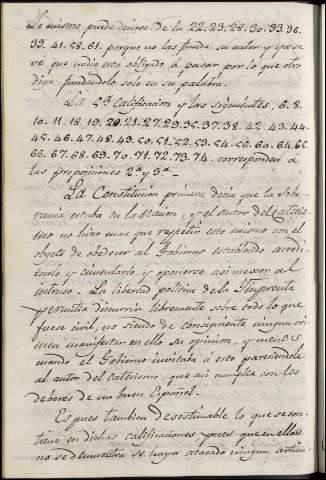 Lo mismo puede decirse de la 22. 23. 28. 30. 33. 36.
39. 41. 58. 61. porque no las funda su autor y ya se
vé que nadie está obligado á pasar por lo que otro
diga fundandolo solo en su palabra.
La 5ª Calificacion y las siguientes, 6. 8.
10. 11. 18. 19. 20. 21. 27. 29. 35. 37. 38. 42. 43. 44.
45. 46. 47. 48. 49. 50. 51. 52. 53. 54. 56. 60. 64. 65.
66. 67. 68. 69. 70. 71. 72. 73. 74. corresponden á
las proposiciones 2ª y 3ª
La Constitucion primera decia que la Sobe-
rania estaba en la Nacion, y el autor del catecis-
mo no hizo mas que repetir esto mismo con el
objeto de obedecer al Gobierno establecido acredi-
tarlo y cimentarlo, y oponerse asi mejor al
intruso. La libertad politica de la Imprenta
permitia discurrir libremente sobre todo lo que
fuese civil, no siendo de consiguiente ningun cri-
men manifestar en ello su opinion, y menos
cuando el Gobierno invitaba á esto pareciendole
al autor del catecismo, que asi cumplia con los
deberes de un buen Español.
Es pues tambien desestimable lo que se con-
tiene en dichas calificaciones pues que en ellas
no se demuestra se haya atacado ningun articu-